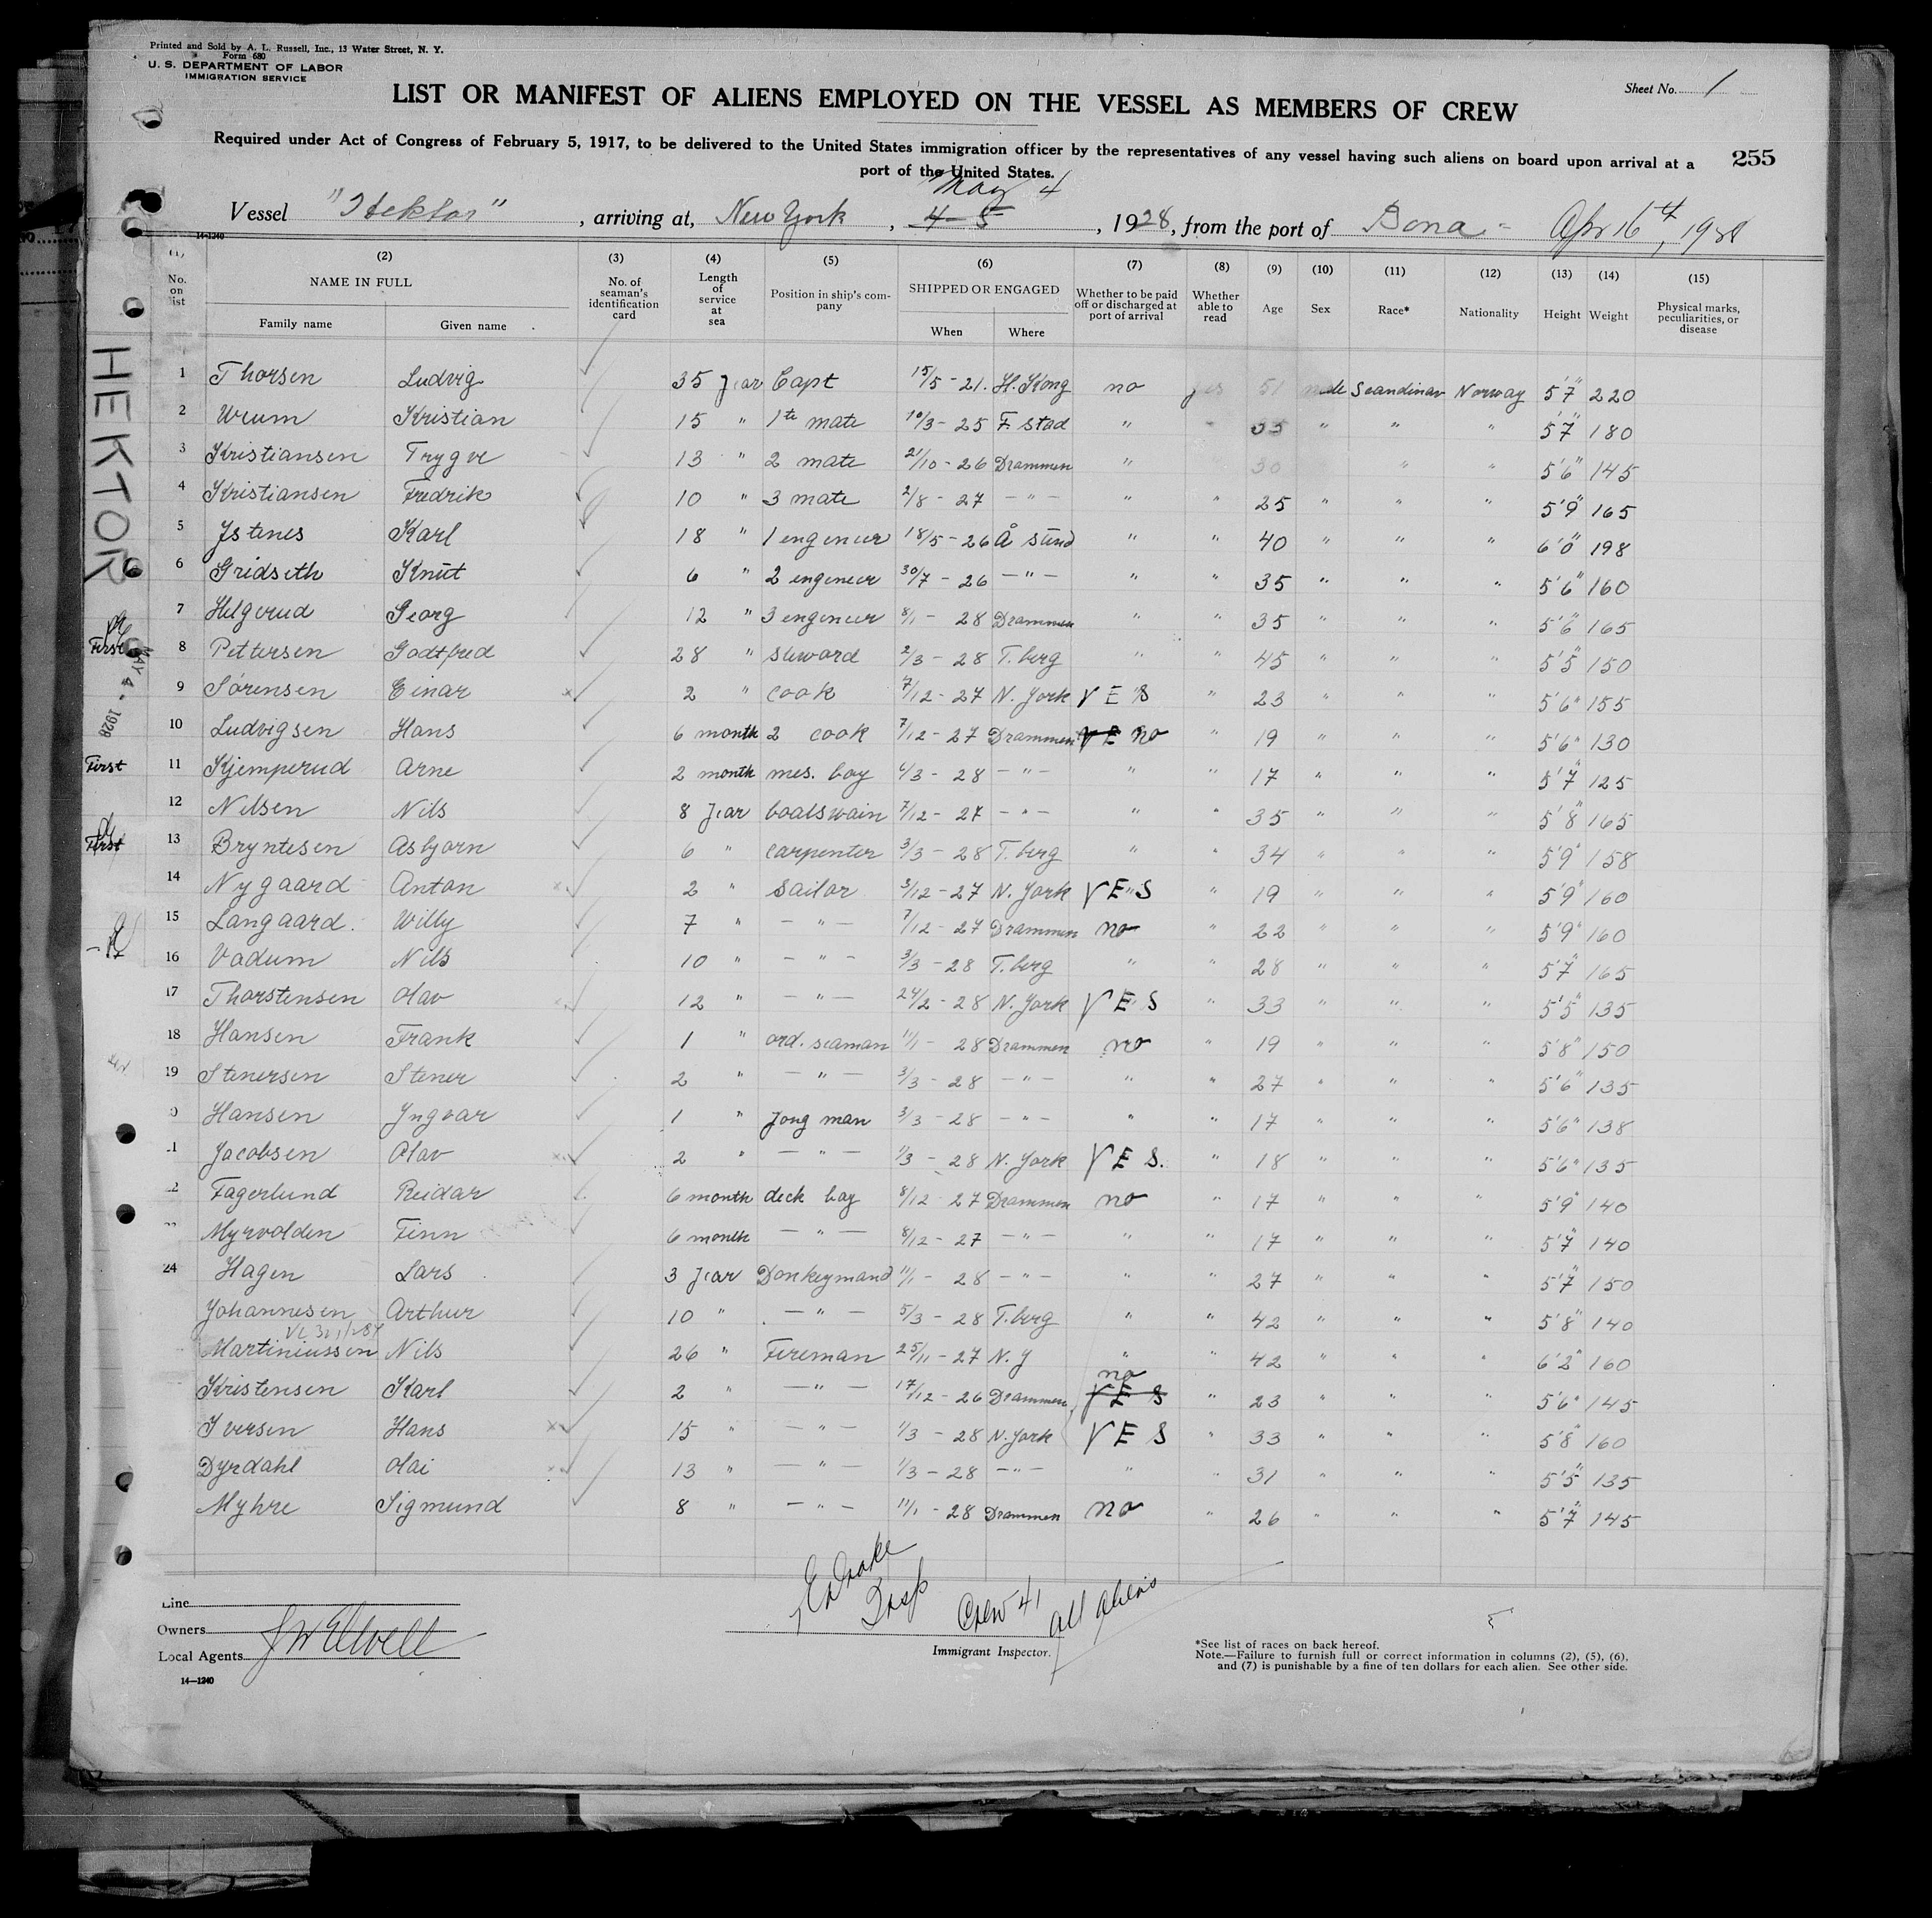 Printed and Sold by A. L. Russell, Inc., 13 Water Street, N. Y.
Form 680
U. S. DEPARTMENT OF LABOR
IMMIGRATION SERVICE
Sheet No. 1
LIST OR MANIFEST OF ALIENS EMPLOYED ON THE VESSEL AS MEMBERS OF CREW
Required under Act of Congress of February 5, 1917, to be delivered to the United States immigration officer by the representatives of any vessel having such aliens on board upon arrival at a
port of the United States.
255
May 4
Vessel "Hektor", arriving at, New York, 4-5, 1928, from the port of Bona - Apr 16th, 1928
14-1240
(1) (2) (3) (4) (5) (6) (7) (8) (9) (10) (11) (12) (13) (14) (15)
No. on list NAME IN FULL No. of seaman's identification card Length of service at sea Position in ship's company SHIPPED OR ENGAGED Whether to be paid off or discharged at port of arrival Whether able to read Age Sex Race* Nationality Height Weight Physical marks, peculiarities, or disease
Family name Given name When Where
HEKTOR
MAY 4 - 1928
1 Thorsen Ludvig 35 year Capt 15/5-21. H. Kong no yes 51 male Scandinav Norway 5'7" 220
2 Wium Kristian 15 " 1te mate 10/3-25 F. stad " " 35 " " " 5'7" 180
3 Kristiansen Trygve 13 " 2 mate 21/10-26 Drammen " 30 " " 5'6" 145
4 Kristiansen Fredrik 10 " 3 mate 2/8-27 -"- " " 25 " " " 5'9" 165
5 Istenes Karl 18 " 1 engeneer 18/5-26 Å sund " " 40 " " " 6'0" 198
6 Gridseth Knut 6 " 2 engeneer 30/7-26 -"- " " 35 " " " 5'6" 160
7 Helgerud Georg 12 " 3 engeneer 8/1-28 Drammen " " 35 " " " 5'6" 165
First 8 Pettersen Godtfred 28 " steward 2/3-28 T. berg " " 45 " " " 5'5" 150
9 Sørensen Einar 2 " cook 7/12-27 N. York YES " 23 " " " 5'6" 155
10 Ludvigsen Hans 6 month 2 cook 7/12-27 Drammen YE no " 19 " " " 5'6" 130
First 11 Kjemperud Arne 2 month mes. boy 6/3-28 -"- " " 17 " " " 5'7" 125
12 Nilsen Nils 8 year boatswain 7/12-27 -"- " " 35 " " " 5'8" 165
First 13 Bryntesen Asbjorn 6 " carpenter 3/3-28 T. berg " " 34 " " " 5'9" 158
14 Nygaard Anton 2 " Sailor 3/12-27 N. York YES 19 " " " 5'9" 160
15 Langaard. Willy 7 " -"- 7/12-27 Drammen no " 22 " " " 5'9" 160
16 Vadum Nils 10 " -"- 3/3-28 T. berg " " 28 " " " 5'7" 165
17 Thorstensen Olav 12 " -"- 24/2-28 N. York YES " 33 " " " 5'5" 135
18 Hansen Frank 1 " ord. seaman 11/1-28 Drammen no " 19 " " " 5'8" 150
19 Stenersen Stener 2 " -"- 3/3-28 -"- " " 27 " " " 5'6" 135
0 Hansen Yngvar 1 " Jong man 3/3-28 -"- " " 17 " " " 5'6" 138
1 Jacobsen Olav 2 " -"- 1/3-28 N. York YES. " 18 " " " 5'6" 135
2 Fagerlund Reidar 6 month deck boy 8/12-27 Drammen no " 17 " " " 5'9" 140
Myrvolden Finn 6 month -"- 8/12-27 -"- " " 17 " " " 5'7" 140
24 Hagen Lars 3 year Donkeymand 11/1-28 -"- " " 27 " " " 5'7" 150
Johannesen Arthur 10 " -"- 5/3-28 T. berg " " 42 " " " 5'8" 140
Martiniussen Nils 26 " Fireman 25/11-27 N.Y " " 42 " " " 6'2" 160
Kristensen Karl 2 " -"- 17/12-26 Drammen no YES " 23 " " " 5'6" 145
Iversen Hans 15 " -"- 1/3-28 N. York YES " 33 " " " 5'8" 160
Dyrdahl Olai 13 " -"- 1/3-28 -"- " " 31 " " " 5'5" 135
Myhre Sigmund 8 " -"- 11/1-28 Drammen no " 26 " " " 5'7" 145
Line
Owners
Local Agents J W Elwell
14-1240
Drake
Insp Crew 41 all aliens
Immigrant Inspector.
*See list of races on back hereof.
Note.—Failure to furnish full or correct information in columns (2), (5), (6),
and (7) is punishable by a fine of ten dollars for each alien. See other side.